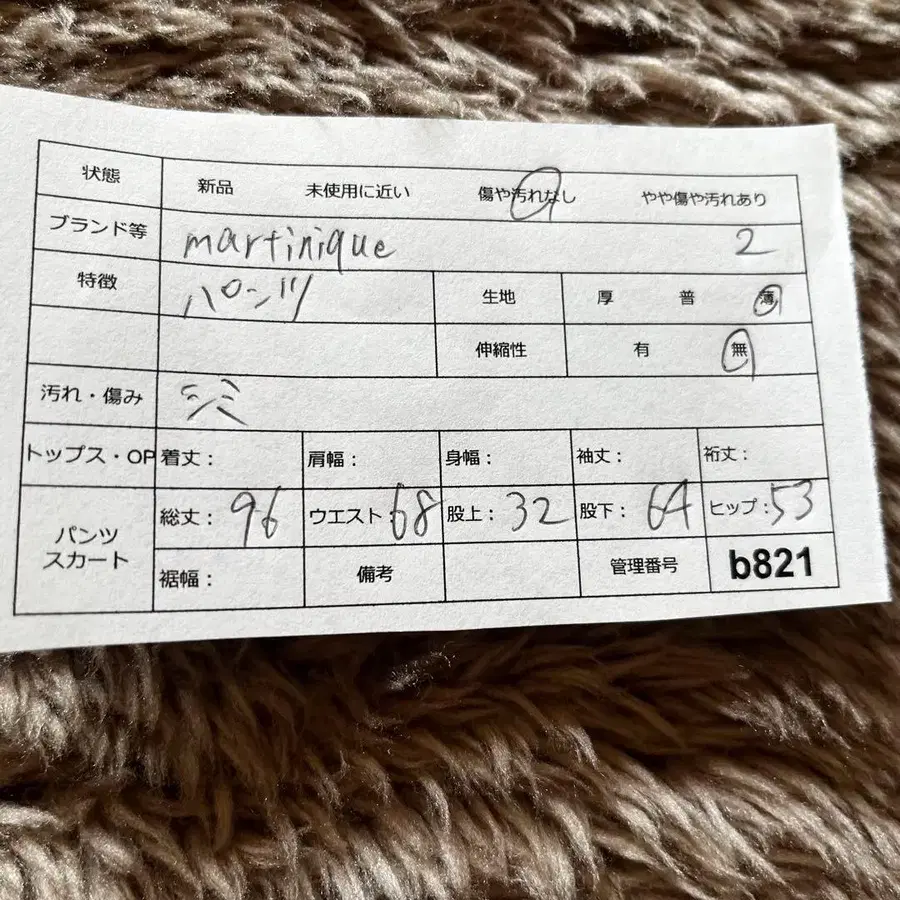 状態 新品 未使用に近い 傷や汚れなし やや傷や汚れあり
ブランド等 martinique 2
特徴 パンツ 生地 厚 普 薄
伸縮性 有 無
汚れ・傷み シミ
トップス・OP 着丈: 肩幅: 身幅: 袖丈: 裄丈:
パンツ スカート 総丈: 96 ウエスト 68 股上: 32 股下: 64 ヒップ: 53
裾幅: 備考 管理番号 b821